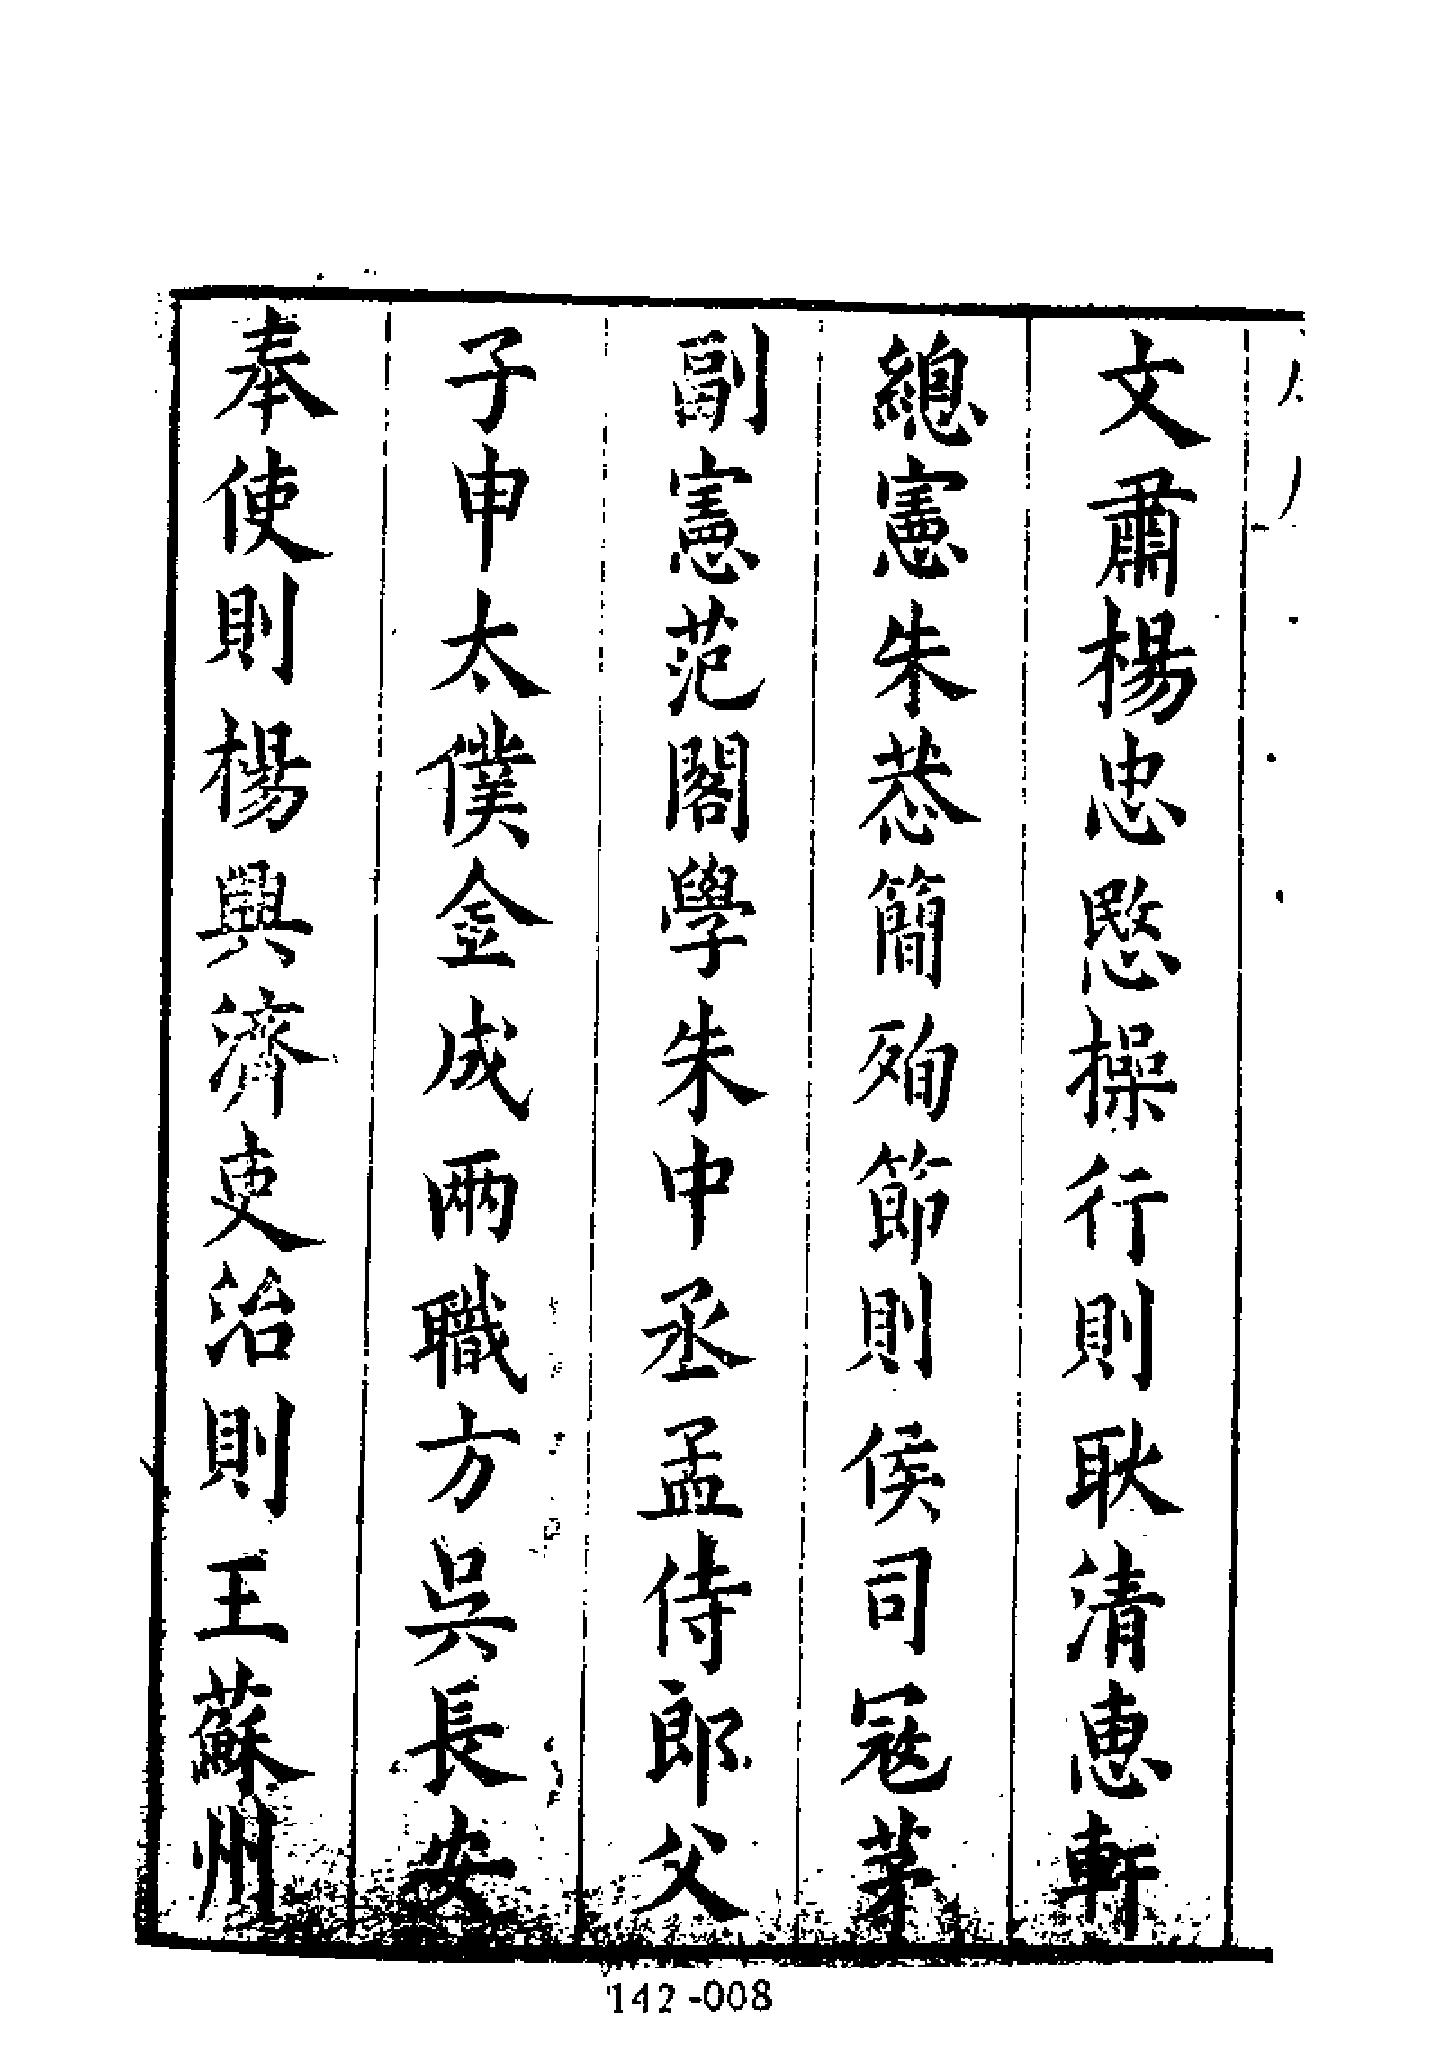 文肅楊忠愍操行則耿清惠軒
總憲朱恭簡殉節則侯司冦茅
副憲范閣學朱中丞孟侍郎父
子申太僕金成兩職方吳長安
奉使則楊興濟吏治則王蘇州
142-008